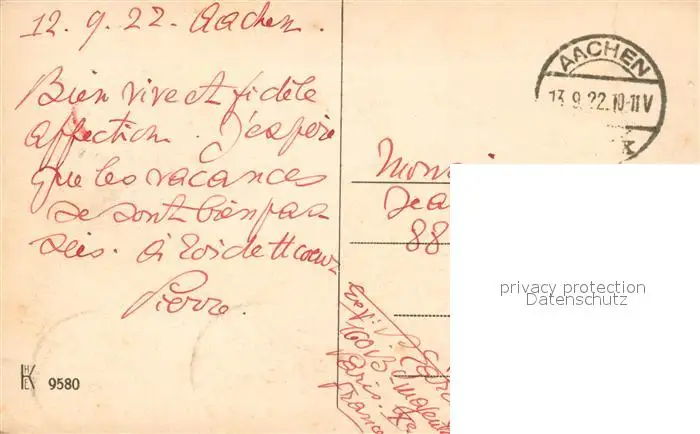 12.9.22. Aachen.
Bien vive et fidèle
affection. J'espère
que les vacances
se sont bien pas-
sées. à toi de tt coeur
Pierre.
AACHEN
13.9.22.10-11V
K
Mon
Jea
88
160
Paris
France
privacy protection
Datenschutz
HKE 9580